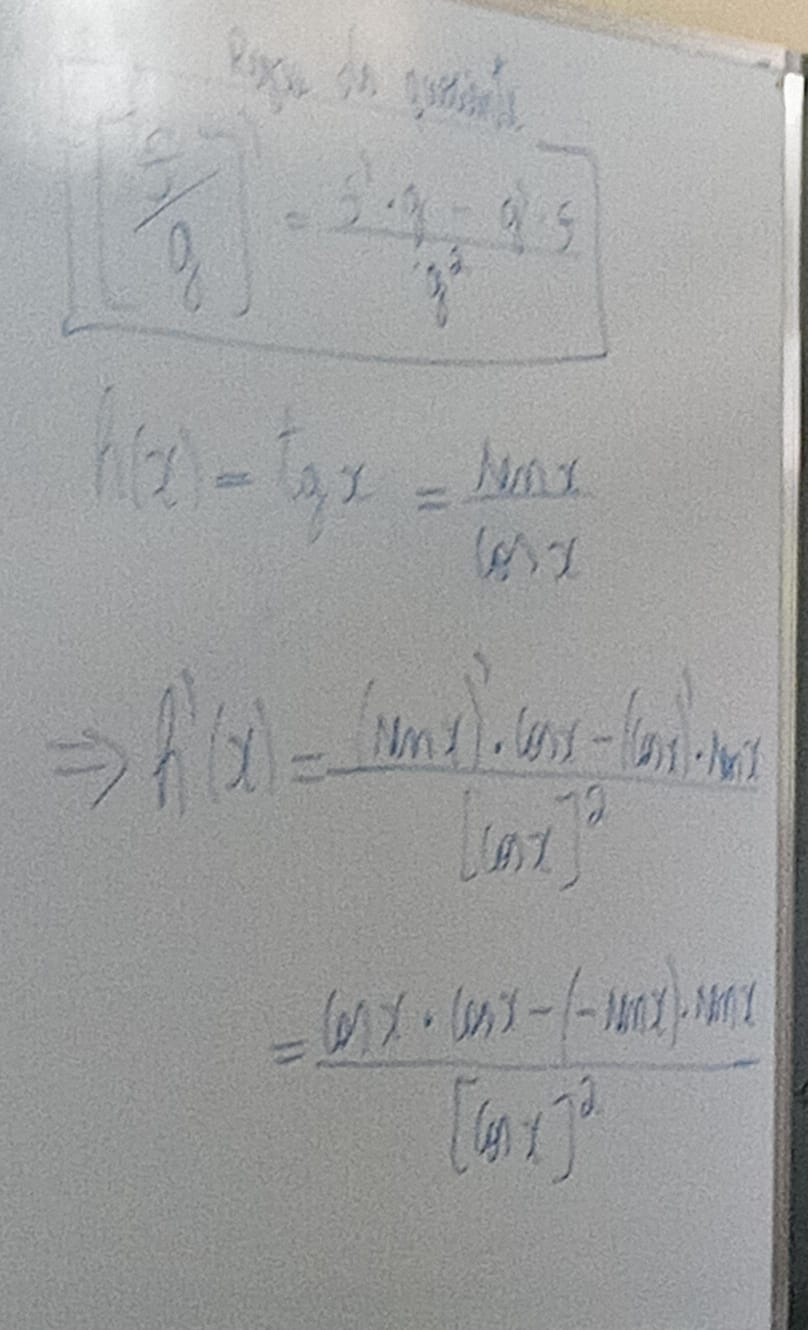 Regra do quociente
[f/g]' = f'·g - g'·f / g²
h(x) = tg x = sen x / cos x
⇒ h'(x) = (sen x)'·cos x - (cos x)'·sen x / [cos x]²
= cos x · cos x - (-sen x)·sen x / [cos x]²